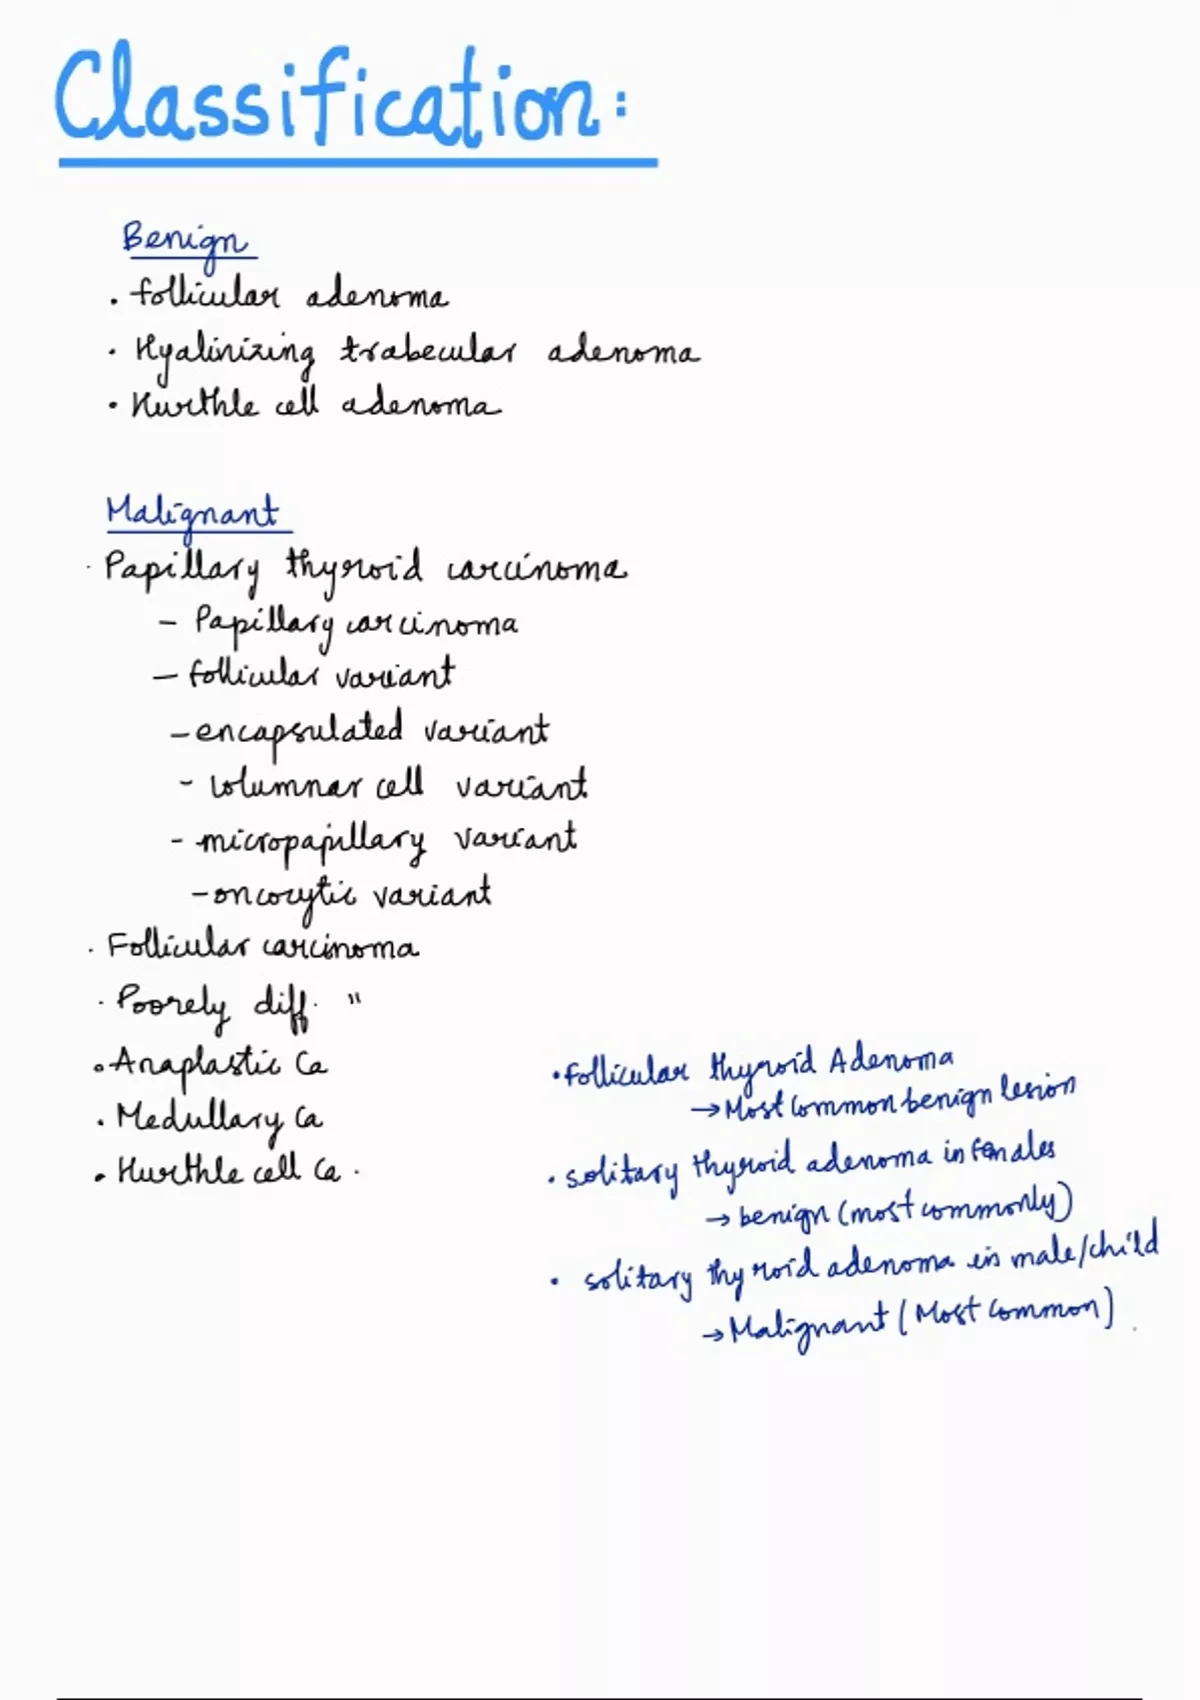 Classification:
Benign
• follicular adenoma
• Hyalinizing trabecular adenoma
• Hurthle cell adenoma
Malignant
• Papillary thyroid carcinoma
- Papillary carcinoma
- follicular variant
- encapsulated variant
- columnar cell variant
- micropapillary variant
- oncocytic variant
• Follicular carcinoma
• Poorely diff. "
• Anaplastic Ca
• Medullary Ca
• Hurthle cell Ca.
• follicular thyroid Adenoma
→ Most common benign lesion
• solitary thyroid adenoma in females
→ benign (most commonly)
• solitary thyroid adenoma in male/child
→ Malignant (Most common).